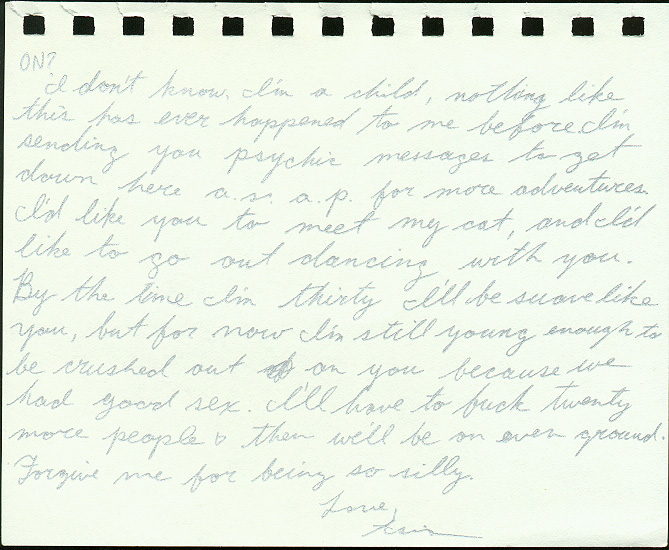 ON?
I don't know. I'm a child, nothing like
this has ever happened to me before. I'm
sending you psychic messages to get
down here a.s. a.p. for more adventures.
I'd like you to meet my cat, and I'd
like to go out dancing with you.
By the time I'm thirty I'll be suave like
you, but for now I'm still young enough to
be crushed out on you because we
had good sex. I'll have to fuck twenty
more people & then we'll be on even ground.
Forgive me for being so silly.
Love,